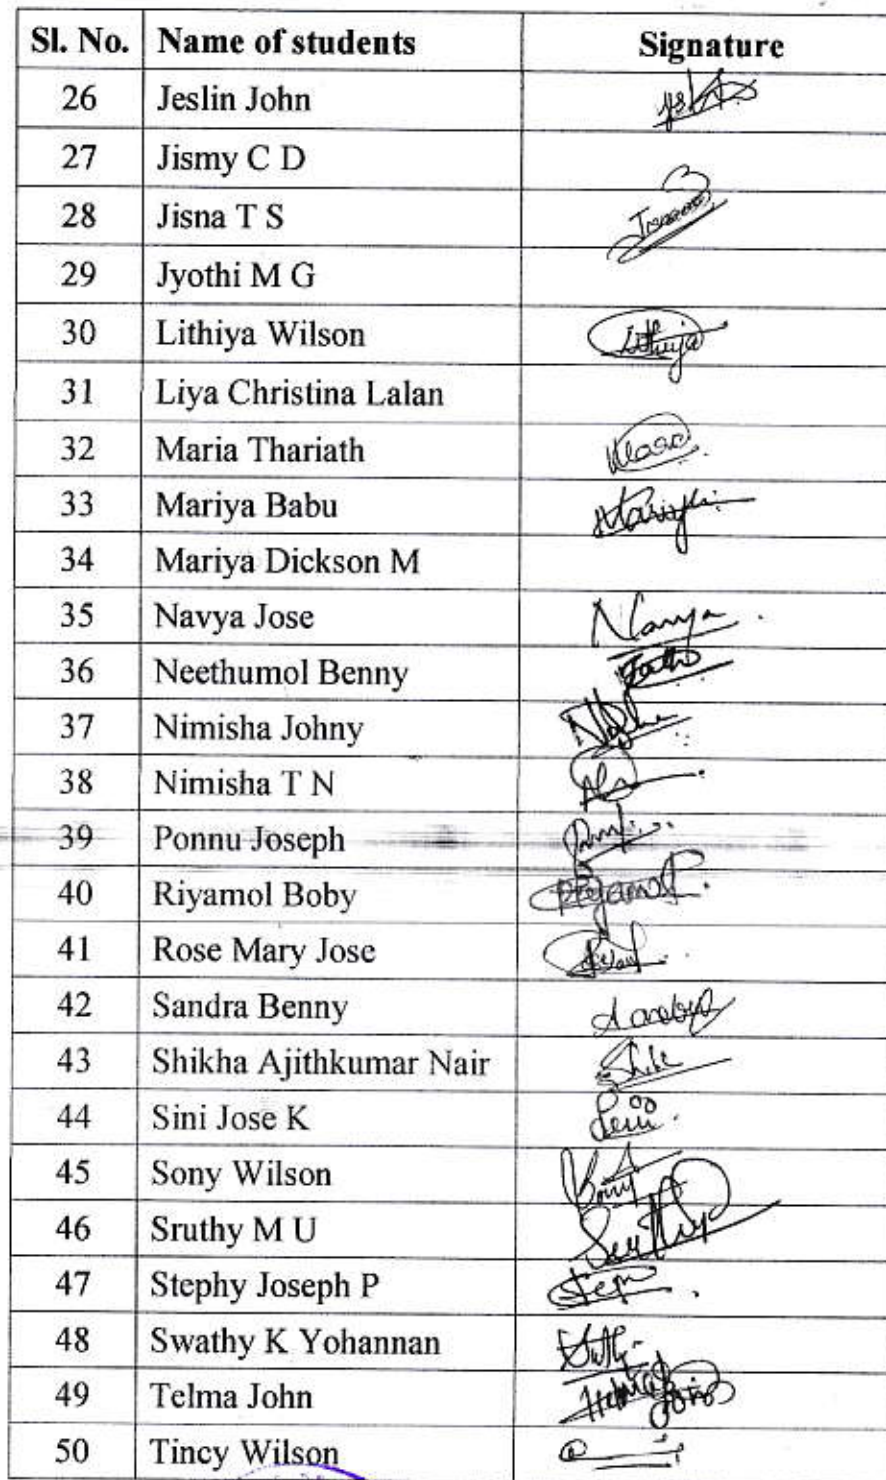 Sl. No. Name of students Signature
26 Jeslin John
27 Jismy C D
28 Jisna T S
29 Jyothi M G
30 Lithiya Wilson Lithiya
31 Liya Christina Lalan
32 Maria Thariath
33 Mariya Babu Mariya
34 Mariya Dickson M
35 Navya Jose Navya
36 Neethumol Benny
37 Nimisha Johny
38 Nimisha T N
39 Ponnu Joseph
40 Riyamol Boby Riyamol
41 Rose Mary Jose
42 Sandra Benny
43 Shikha Ajithkumar Nair
44 Sini Jose K
45 Sony Wilson Sony
46 Sruthy M U Sruthy
47 Stephy Joseph P
48 Swathy K Yohannan
49 Telma John
50 Tincy Wilson